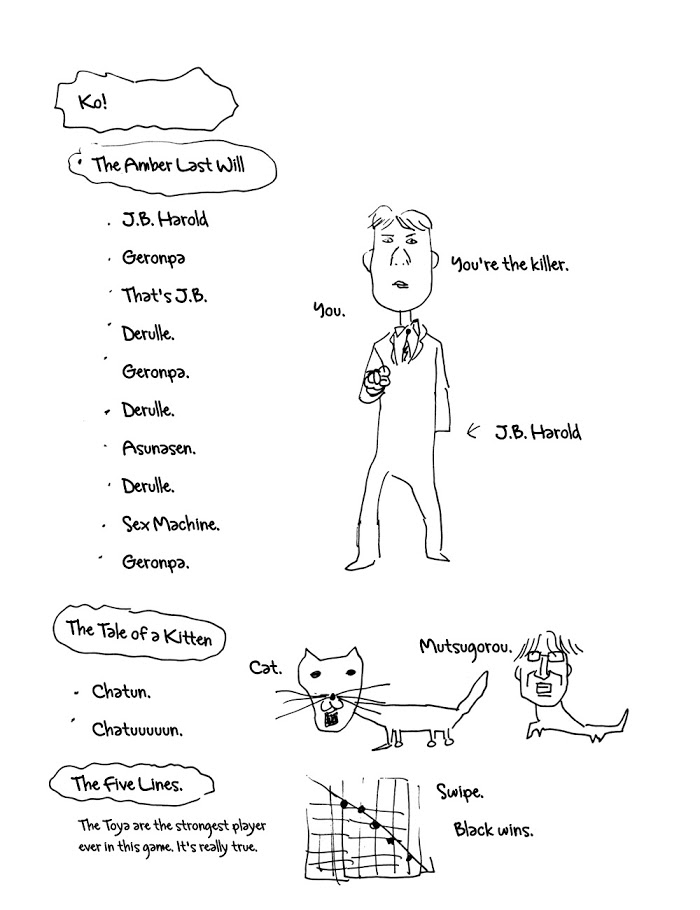 Ko!
The Amber Last Will
J.B. Harold
Geronpa
That's J.B.
Derulle.
Geronpa.
Derulle.
Asunasen.
Derulle.
Sex Machine.
Geronpa.
You're the killer.
You.
J.B. Harold
The Tale of a Kitten
Chatun.
Chatuuuuun.
Cat.
Mutsugorou.
The Five Lines.
The Toya are the strongest player
ever in this game. It's really true.
Swipe.
Black wins.